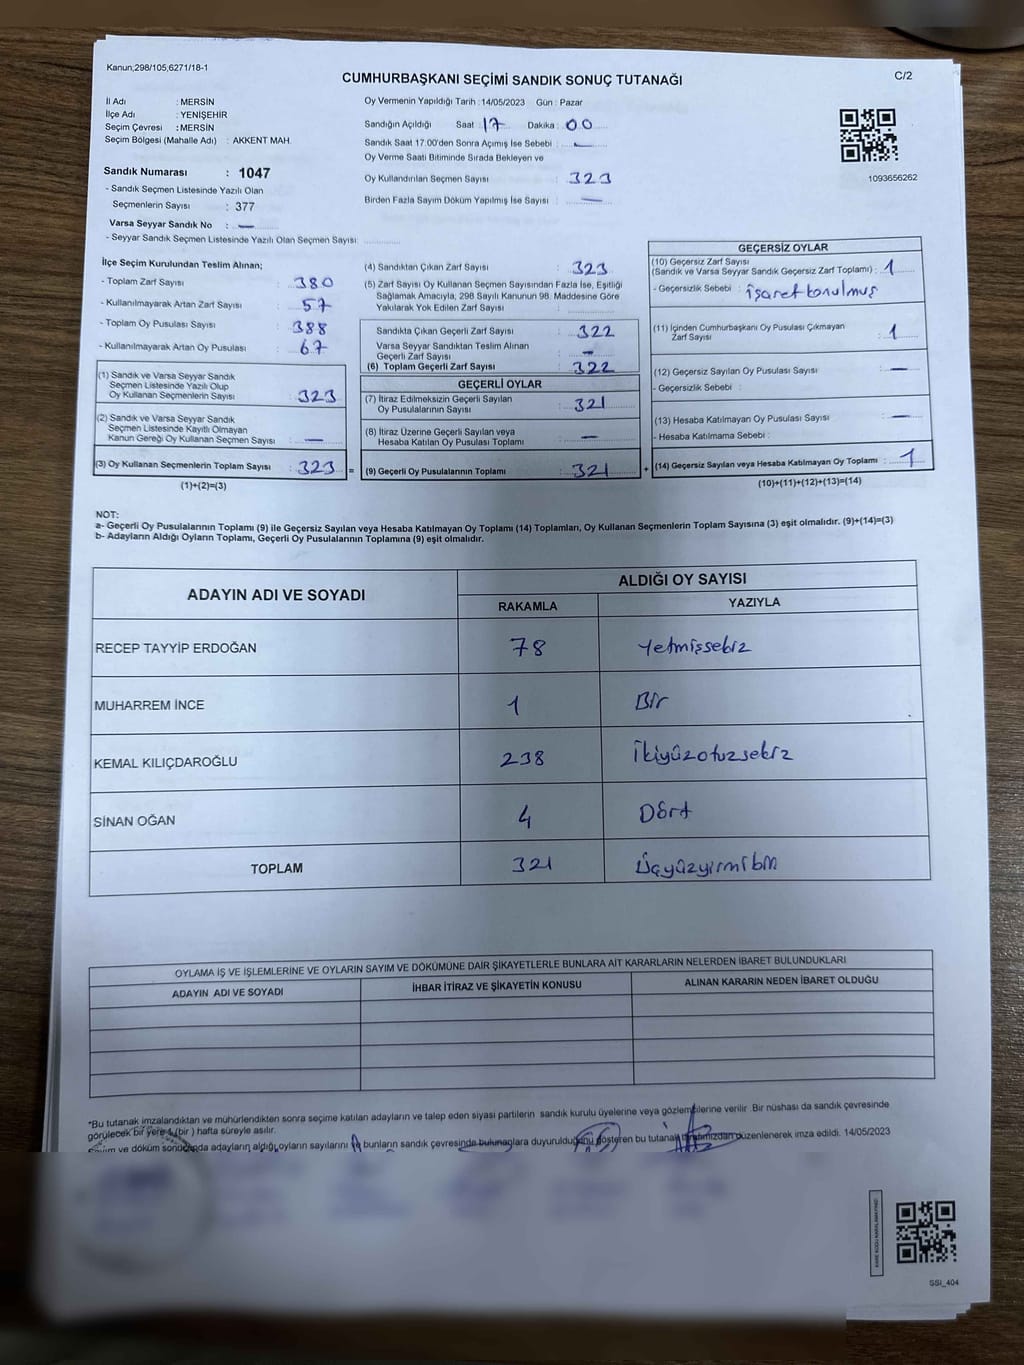 Kanun;298/105,6271/18-1
CUMHURBAŞKANI SEÇİMİ SANDIK SONUÇ TUTANAĞI
C/2
İl Adı : MERSİN
İlçe Adı : YENİŞEHİR
Seçim Çevresi : MERSİN
Seçim Bölgesi (Mahalle Adı) : AKKENT MAH.
Sandık Numarası : 1047
- Sandık Seçmen Listesinde Yazılı Olan
Seçmenlerin Sayısı : 377
Varsa Seyyar Sandık No : —
- Seyyar Sandık Seçmen Listesinde Yazılı Olan Seçmen Sayısı:
Oy Vermenin Yapıldığı Tarih : 14/05/2023 Gün : Pazar
Sandığın Açıldığı Saat : 17 Dakika : 00
Sandık Saat 17.00'den Sonra Açımış İse Sebebi : —
Oy Verme Saati Bitiminde Sırada Bekleyen ve
Oy Kullandırılan Seçmen Sayısı : 323
Birden Fazla Sayım Döküm Yapılmış İse Sayısı : —
1093656262
İlçe Seçim Kurulundan Teslim Alınan;
- Toplam Zarf Sayısı : 380
- Kullanılmayarak Artan Zarf Sayısı : 57
- Toplam Oy Pusulası Sayısı : 388
- Kullanılmayarak Artan Oy Pusulası : 67
(1) Sandık ve Varsa Seyyar Sandık
Seçmen Listesinde Yazılı Olup
Oy Kullanan Seçmenlerin Sayısı : 323
(2) Sandık ve Varsa Seyyar Sandık
Seçmen Listesinde Kayıtlı Olmayan
Kanun Gereği Oy Kullanan Seçmen Sayısı : —
(3) Oy Kullanan Seçmenlerin Toplam Sayısı : 323 =
(1)+(2)=(3)
(4) Sandıktan Çıkan Zarf Sayısı : 323
(5) Zarf Sayısı Oy Kullanan Seçmen Sayısından Fazla İse, Eşitliği
Sağlamak Amacıyla, 298 Sayılı Kanunun 98. Maddesine Göre
Yakılarak Yok Edilen Zarf Sayısı :
Sandıkta Çıkan Geçerli Zarf Sayısı : 322
Varsa Seyyar Sandıktan Teslim Alınan
Geçerli Zarf Sayısı : —
(6) Toplam Geçerli Zarf Sayısı : 322
GEÇERLİ OYLAR
(7) İtiraz Edilmeksizin Geçerli Sayılan
Oy Pusulalarının Sayısı : 321
(8) İtiraz Üzerine Geçerli Sayılan veya
Hesaba Katılan Oy Pusulası Toplamı : —
(9) Geçerli Oy Pusulalarının Toplamı : 321 +
GEÇERSİZ OYLAR
(10) Geçersiz Zarf Sayısı
(Sandık ve Varsa Seyyar Sandık Geçersiz Zarf Toplamı) : 1
- Geçersizlik Sebebi : işaret konulmuş
(11) İçinden Cumhurbaşkanı Oy Pusulası Çıkmayan
Zarf Sayısı : 1
(12) Geçersiz Sayılan Oy Pusulası Sayısı : —
- Geçersizlik Sebebi :
(13) Hesaba Katılmayan Oy Pusulası Sayısı : —
- Hesaba Katılmama Sebebi :
(14) Geçersiz Sayılan veya Hesaba Katılmayan Oy Toplamı : 1
(10)+(11)+(12)+(13)=(14)
NOT:
a- Geçerli Oy Pusulalarının Toplamı (9) ile Geçersiz Sayılan veya Hesaba Katılmayan Oy Toplamı (14) Toplamları, Oy Kullanan Seçmenlerin Toplam Sayısına (3) eşit olmalıdır. (9)+(14)=(3)
b- Adayların Aldığı Oyların Toplamı, Geçerli Oy Pusulalarının Toplamına (9) eşit olmalıdır.
ADAYIN ADI VE SOYADI
ALDIĞI OY SAYISI
RAKAMLA YAZIYLA
RECEP TAYYİP ERDOĞAN 78 Yetmişsekiz
MUHARREM İNCE 1 Bir
KEMAL KILIÇDAROĞLU 238 İkiyüzotuzsekiz
SİNAN OĞAN 4 Dört
TOPLAM 321 Üçyüzyirmibir
OYLAMA İŞ VE İŞLEMLERİNE VE OYLARIN SAYIM VE DÖKÜMÜNE DAİR ŞİKAYETLERLE BUNLARA AİT KARARLARIN NELERDEN İBARET BULUNDUKLARI
ADAYIN ADI VE SOYADI İHBAR İTİRAZ VE ŞİKAYETİN KONUSU ALINAN KARARIN NEDEN İBARET OLDUĞU
*Bu tutanak imzalandıktan ve mühürlendikten sonra seçime katılan adayların ve talep eden siyasi partilerin sandık kurulu üyelerine veya gözlemcilerine verilir. Bir nüshası da sandık çevresinde
görülecek bir yere 1 (bir ) hafta süreyle asılır.
Sayım ve döküm sonucunda adayların aldığı oyların sayılarını ve bunların sandık çevresinde bulunanlara duyurulduğunu gösteren bu tutanak tarafımızdan düzenlenerek imza edildi. 14/05/2023
SSİ_404